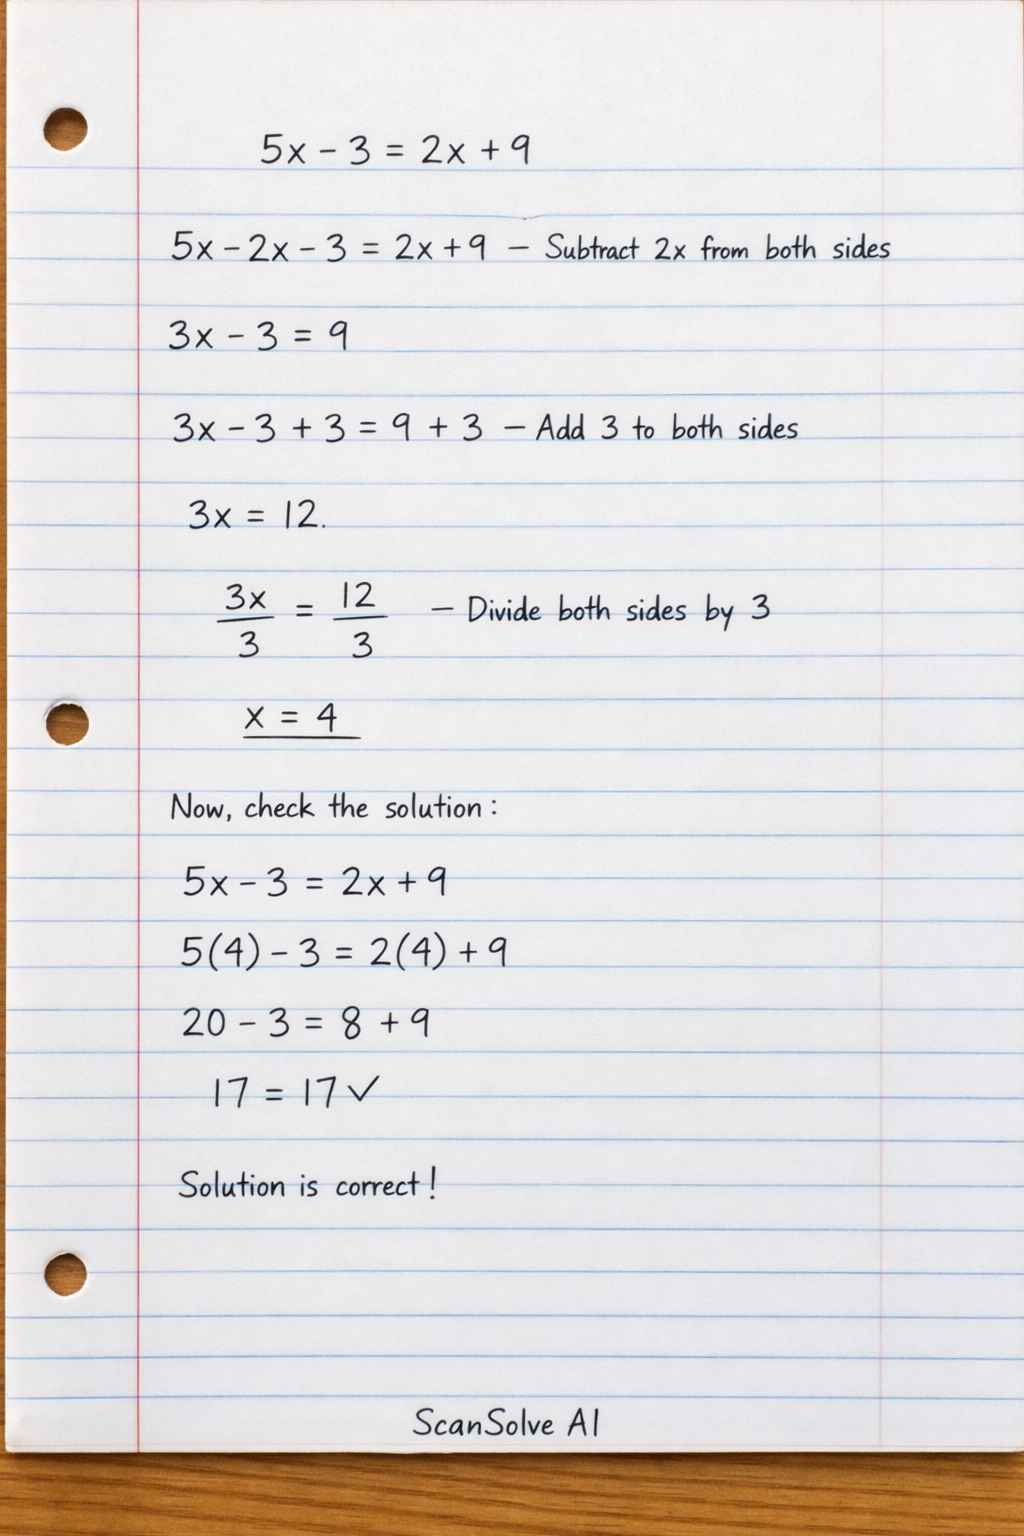 5x - 3 = 2x + 9
5x - 2x - 3 = 2x + 9 — Subtract 2x from both sides
3x - 3 = 9
3x - 3 + 3 = 9 + 3 — Add 3 to both sides
3x = 12.
3x/3 = 12/3 — Divide both sides by 3
x = 4
Now, check the solution :
5x - 3 = 2x + 9
5(4) - 3 = 2(4) + 9
20 - 3 = 8 + 9
17 = 17 ✓
Solution is correct !
ScanSolve AI